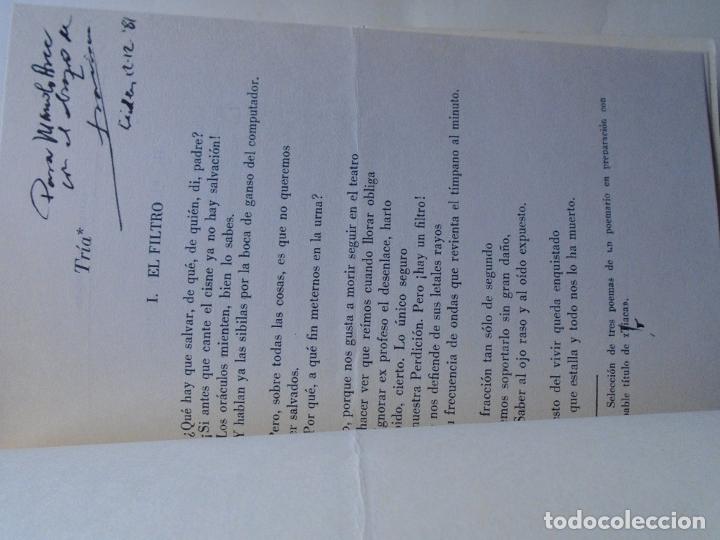 Para Manolo Arce
con el abrazo de
Francisco
Leiden, 12-12-'81
Tría*
I. EL FILTRO
¿Qué hay que salvar, de qué, de quién, di, padre?
¡Si antes que cante el cisne ya no hay salvación!
Los oráculos mienten, bien lo sabes.
Y hablan ya las sibilas por la boca de ganso del computador.
Pero, sobre todas las cosas, es que no queremos
er salvados.
Por qué, a qué fin meternos en la urna?
o, porque nos gusta a morir seguir en el teatro
hacer ver que reímos cuando llorar obliga
gnorar ex profeso el desenlace, harto
bido, cierto. Lo único seguro
nuestra Perdición. Pero ¡hay un filtro!
nos defiende de sus letales rayos
a frecuencia de ondas que revienta el tímpano al minuto.
fracción tan sólo de segundo
emos soportarlo sin gran daño,
Saber al ojo raso y al oído expuesto.
esto del vivir queda enquistado
que estalla y todo nos lo ha muerto.
Selección de tres poemas de un poemario en preparación con
bable título de
todocoleccion.net